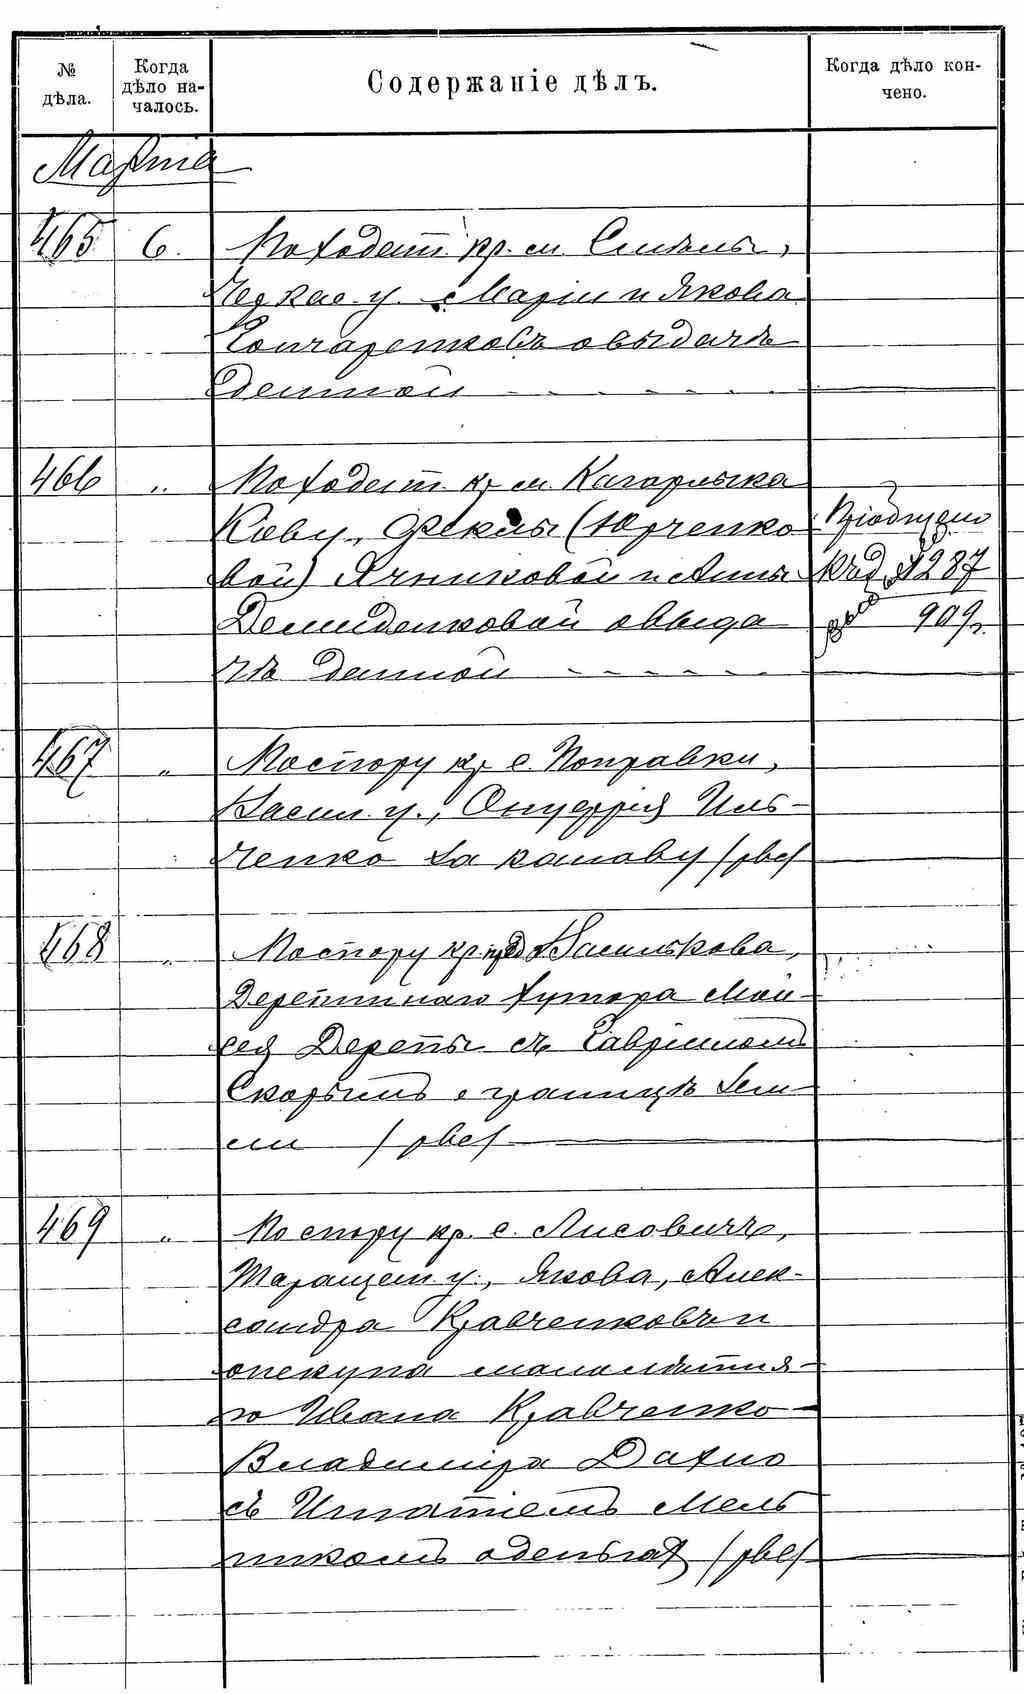 №
дѣла.
Когда
дѣло на-
чалось.
Содержаніе дѣлъ.
Когда дѣло кон-
чено.
Марта
465 6. По ходат. кр. м. Смѣлы,
Черкас. у. Маріи и Якова
Гончаренковъ о выдачѣ
данной
466 " По ходат. кр. м. Кагарлыка
Кіеву, Феклы (Юрченко
вой) Ячниковой и Анны
Демиденковой о выда
чѣ данной
Пріобщено
къ д. № 287
909 г.
467 " По спору кр. с. Поправки,
Васил. у., Онуфрія Иль-
ченко за канаву /рвс/
468 " По спору кр. Василькова,
Деретинаго хутора Мой-
сея Дереты съ Гавріиломъ
Скорымъ о границѣ зем-
ли /рвс/
469 " По спору кр. с. Лисовичъ,
Таращан. у., Якова, Алек-
сандра Кравченковъ и
опекуна малолѣтня-
го Ивана Кравченко
Владиміра Дахно
съ Игнатіемъ Мель
никомъ о деньгах /рвс/